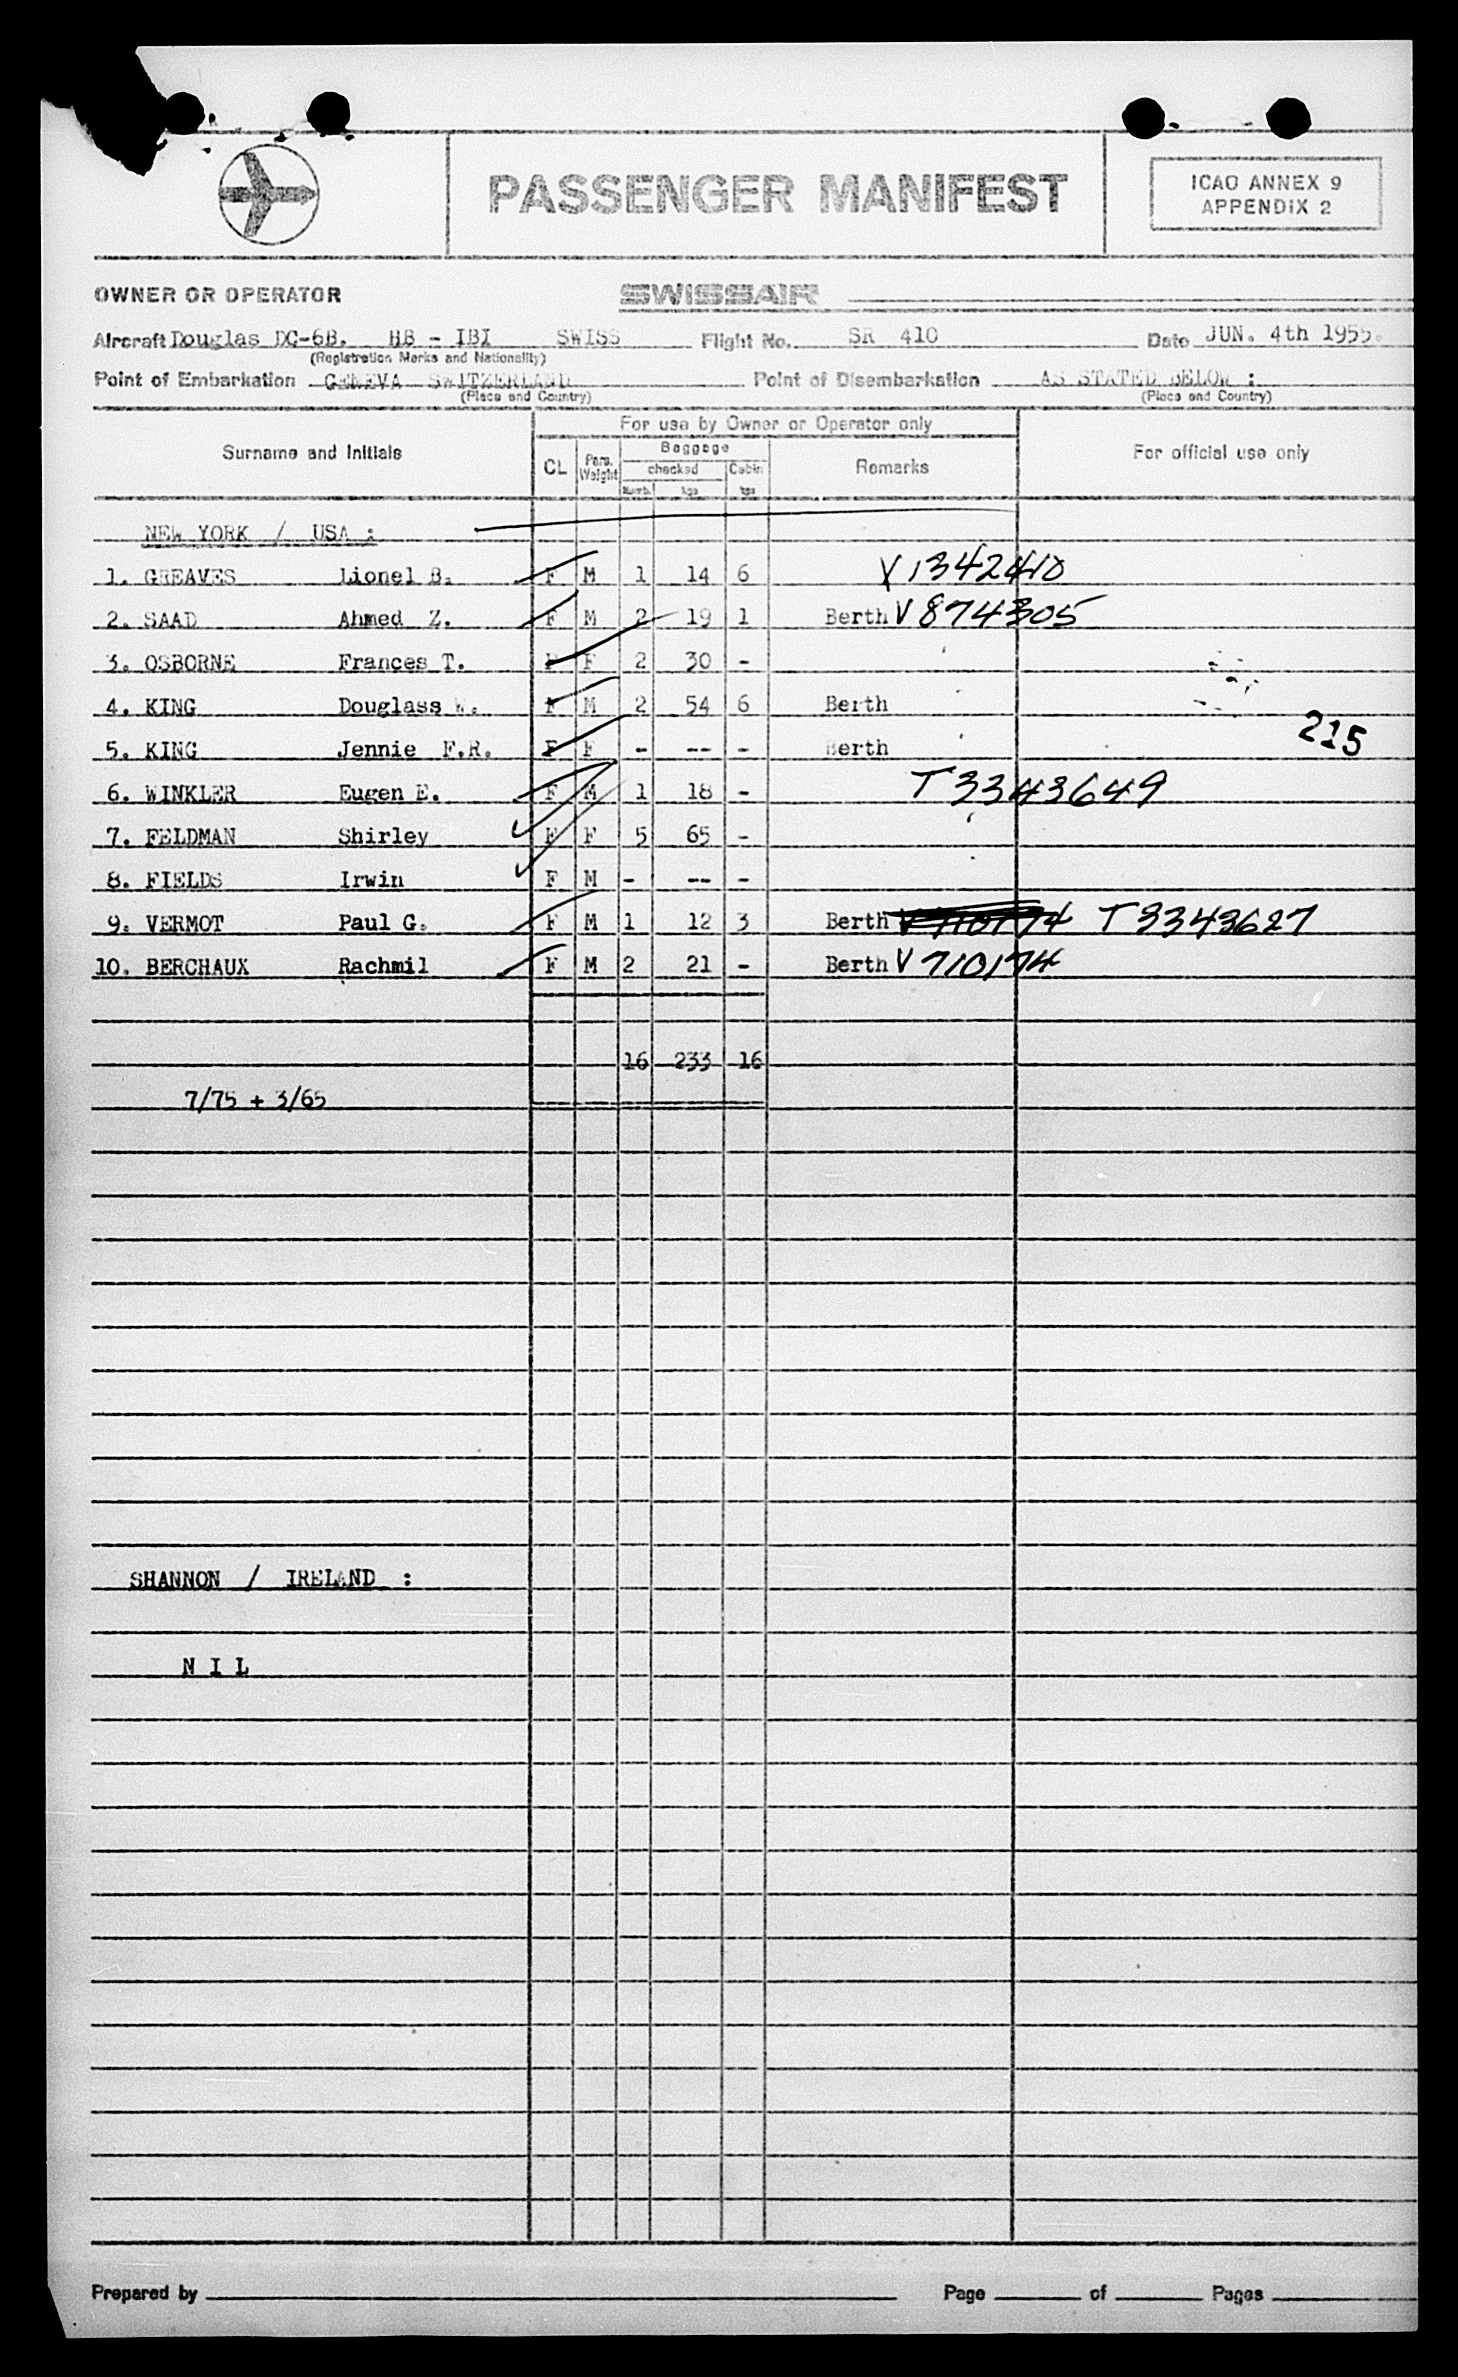 PASSENGER MANIFEST
ICAO ANNEX 9
APPENDIX 2
OWNER OR OPERATOR SWISSAIR
Aircraft Douglas DC-6B. HB - IBI SWISS Flight No. SR 410 Date JUN. 4th 1955.
(Registration Marks and Nationality)
Point of Embarkation GENEVA SWITZERLAND Point of Disembarkation AS STATED BELOW :
(Place and Country) (Place and Country)
For use by Owner or Operator only
Surname and Initials CL Pers. Weight Baggage Remarks For official use only
checked Cabin
Numb. kgs kgs
NEW YORK / USA :
1. GREAVES Lionel B. F M 1 14 6 V1342410
2. SAAD Ahmed Z. F M 2 19 1 Berth V874305
3. OSBORNE Frances T. F F 2 30 -
4. KING Douglass W. F M 2 54 6 Berth
5. KING Jennie F.R. F F - -- - Berth 215
6. WINKLER Eugen E. F M 1 18 - T3343649
7. FELDMAN Shirley F F 5 65 -
8. FIELDS Irwin F M - -- -
9. VERMOT Paul G. F M 1 12 3 Berth V710174 T3343627
10. BERCHAUX Rachmil F M 2 21 - Berth V710174
16 233 16
7/75 + 3/65
SHANNON / IRELAND :
N I L
Prepared by Page of Pages